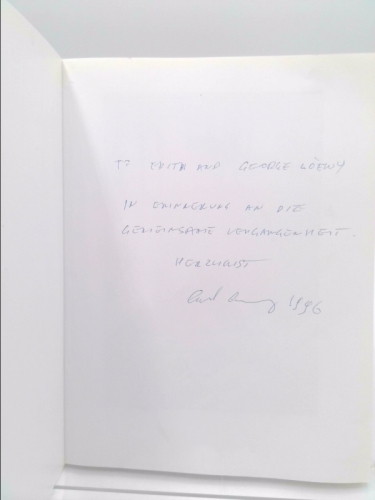 TO EDITH AND GEORGE LOEWY
IN ERINNERUNG AN DIE
GEMEINSAME VERGANGENHEIT.
HERZLICHST
1996